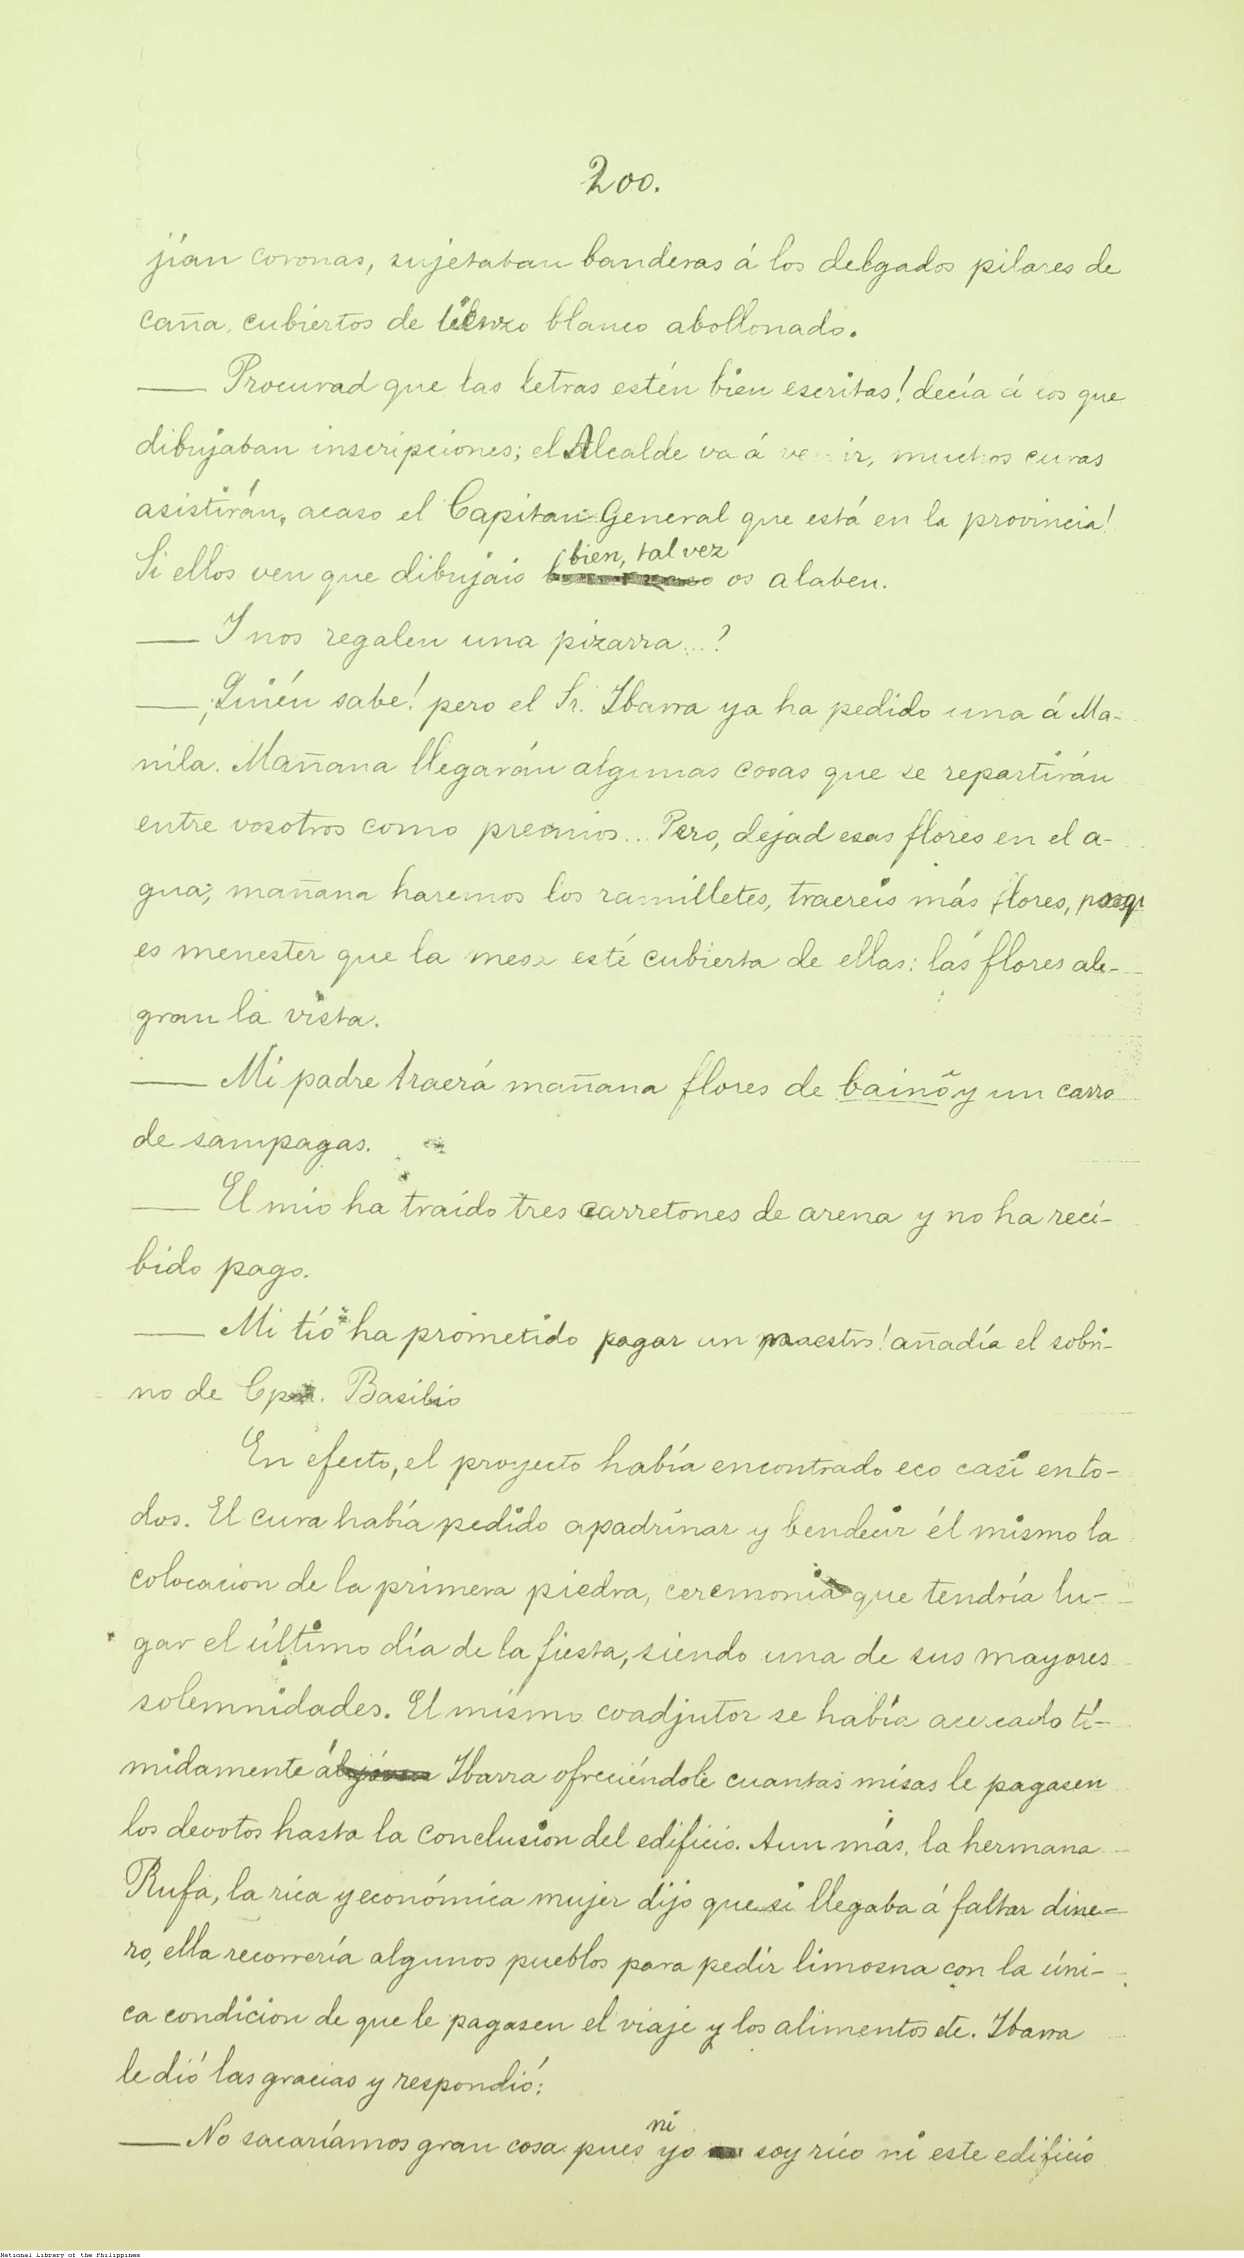 200.
jían coronas, sujetaban banderas á los delgados pilares de
caña, cubiertos de lienzo blanco abollonado.
— Procurad que las letras estén bien escritas! decía á los que
dibujaban inscripciones; el Alcalde va á venir, muchos curas
asistirán, acaso el Capitan General que está en la provincia!
bien, tal vez
Si ellos ven que dibujais os alaben.
— Y nos regalen una pizarra...?
— ¡Quién sabe! pero el Sr. Ibarra ya ha pedido una á Ma-
nila. Mañana llegarán algunas cosas que se repartirán
entre vosotros como premios... Pero, dejad esas flores en el a-
gua; mañana haremos los ramilletes, traereis más flores,
es menester que la mesa esté cubierta de ellas: las flores ale-
gran la vista.
— Mi padre traerá mañana flores de bainõ y un carro
de sampagas.
— El mio ha traido tres carretones de arena y no ha reci-
bido pago.
— Mi tío ha prometido pagar un maestro! añadía el sobri-
no de Cpn. Basilio
En efecto, el proyecto había encontrado eco casi en to-
dos. El cura había pedido apadrinar y bendecir él mismo la
colocacion de la primera piedra, ceremonia que tendría lu-
gar el último día de la fiesta, siendo una de sus mayores
solemnidades. El mismo coadjutor se había acercado tí-
midamente á Ibarra ofreciéndole cuantas misas le pagasen
los devotos hasta la conclusion del edificio. Aun más, la hermana
Rufa, la rica y económica mujer dijo que si llegaba á faltar dine-
ro, ella recorrería algunos pueblos para pedir limosna con la úni-
ca condicion de que le pagasen el viaje y los alimentos etc. Ibarra
le dió las gracias y respondió:
ni
— No sacaríamos gran cosa pues yo soy rico ni este edificio
National Library of the Philippines